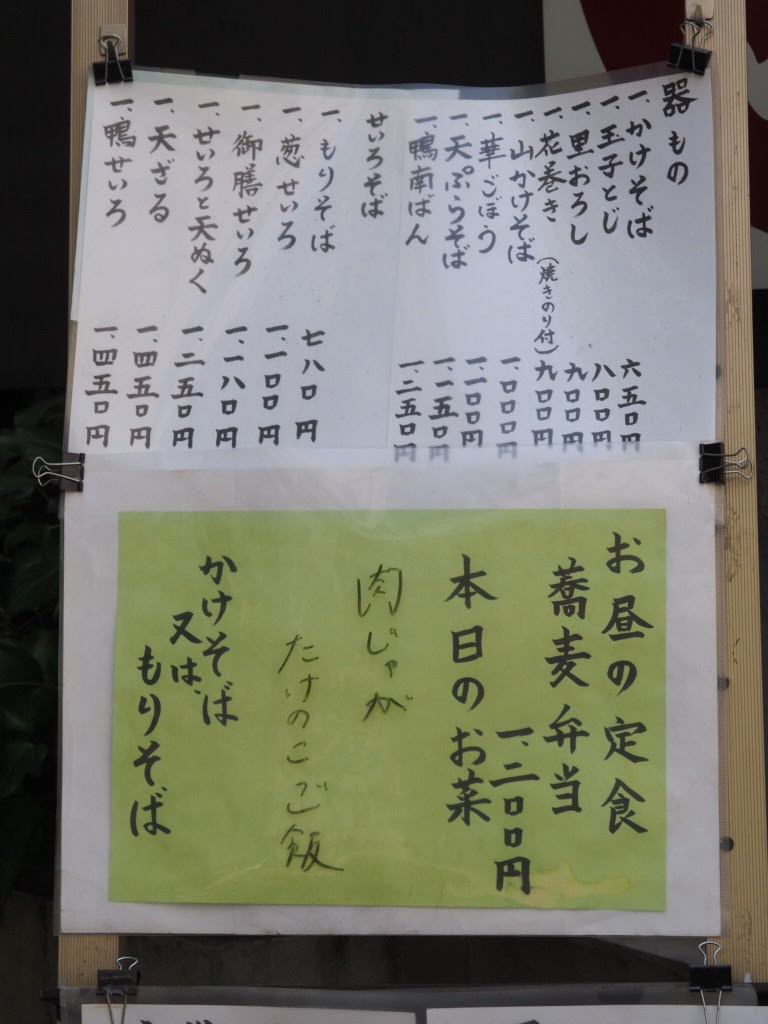 器もの
一、かけそば 六五〇円
一、玉子とじ 八〇〇円
一、里おろし 九〇〇円
一、花巻き(焼きのり付) 九〇〇円
一、山かけそば 一、〇〇〇円
一、華ごぼう 一、一〇〇円
一、天ぷらそば 一、一五〇円
一、鴨南ばん 一、二五〇円
せいろそば
一、もりそば 七八〇円
一、葱せいろ 一、一〇〇円
一、御膳せいろ 一、一八〇円
一、せいろと天ぬく 一、二五〇円
一、天ざる 一、四五〇円
一、鴨せいろ 一、四五〇円
お昼の定食
蕎麦弁当
一、二〇〇円
本日のお菜
肉じゃが
たけのこご飯
かけそば
又は、
もりそば